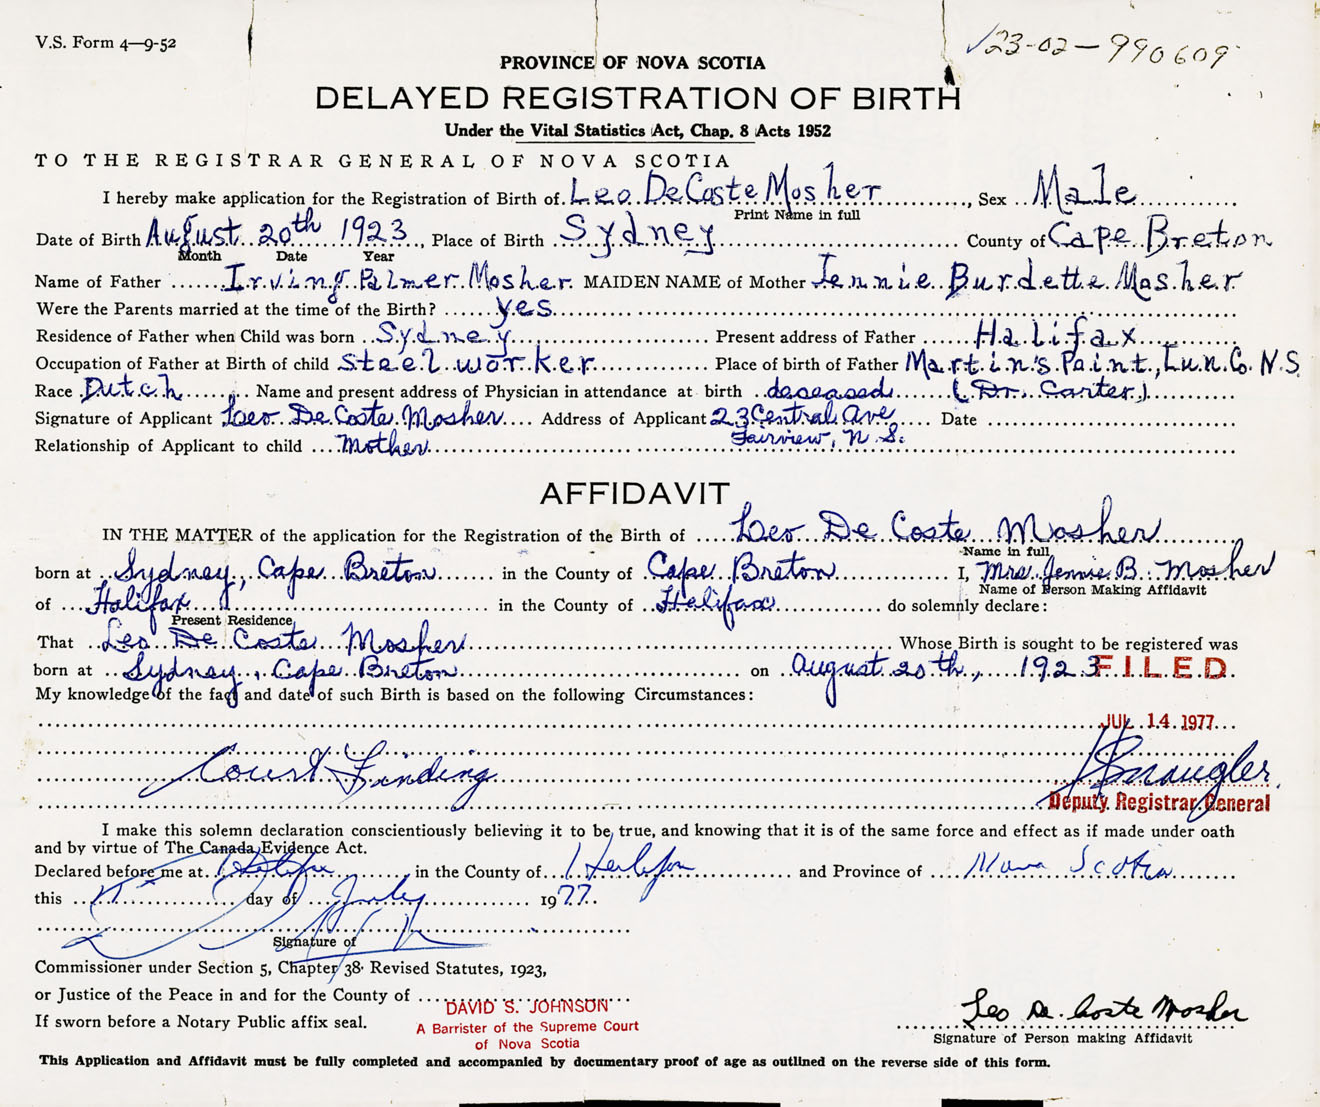 V.S. Form 4—9-52
23-02-990609
PROVINCE OF NOVA SCOTIA
DELAYED REGISTRATION OF BIRTH
Under the Vital Statistics Act, Chap. 8 Acts 1952
TO THE REGISTRAR GENERAL OF NOVA SCOTIA
I hereby make application for the Registration of Birth of Leo DeCoste Mosher, Sex Male
Print Name in full
Date of Birth August 20th 1923, Place of Birth Sydney County of Cape Breton
Month Date Year
Name of Father Irving Palmer Mosher MAIDEN NAME of Mother Jennie Burdette Mosher
Were the Parents married at the time of the Birth? yes
Residence of Father when Child was born Sydney Present address of Father Halifax
Occupation of Father at Birth of child steel worker Place of birth of Father Martin's Point, Lun. Co. N.S.
Race Dutch Name and present address of Physician in attendance at birth deceased (Dr. Carter)
Signature of Applicant Leo De Coste Mosher Address of Applicant 23 Central Ave Date
Fairview, N.S.
Relationship of Applicant to child Mother
AFFIDAVIT
IN THE MATTER of the application for the Registration of the Birth of Leo De Coste Mosher
Name in full
born at Sydney, Cape Breton in the County of Cape Breton I, Mrs Jennie B. Mosher
Name of Person Making Affidavit
of Halifax in the County of Halifax do solemnly declare:
Present Residence
That Leo De Coste Mosher Whose Birth is sought to be registered was
born at Sydney, Cape Breton on August 20th, 1923 FILED
My knowledge of the fact and date of such Birth is based on the following Circumstances:
JUL 14 1977
Court Finding
Deputy Registrar General
I make this solemn declaration conscientiously believing it to be true, and knowing that it is of the same force and effect as if made under oath
and by virtue of The Canada Evidence Act.
Declared before me at Halifax in the County of Halifax and Province of Nova Scotia
this day of July 1977.
Signature of
Commissioner under Section 5, Chapter 38 Revised Statutes, 1923,
or Justice of the Peace in and for the County of
DAVID S. JOHNSON
If sworn before a Notary Public affix seal.
A Barrister of the Supreme Court
of Nova Scotia
Leo De Coste Mosher
Signature of Person making Affidavit
This Application and Affidavit must be fully completed and accompanied by documentary proof of age as outlined on the reverse side of this form.